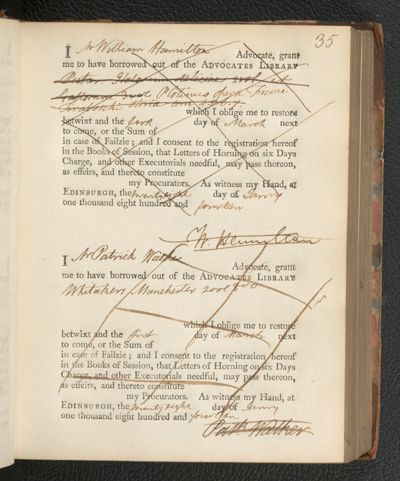 35
I Mr William Hamilton Advocate, grant
me to have borrowed out of the ADVOCATES LIBRARY
Plotinus
which I oblige me to restore
betwixt and the first day of March next
to come, or the Sum of
in case of Failzie; and I consent to the registration hereof
in the Books of Session, that Letters of Horning on six Days
Charge, and other Executorials needful, may pass thereon,
as effeirs, and thereto constitute
my Procurators. As witness my Hand, at
EDINBURGH, the twenty eight day of Janry
one thousand eight hundred and fourteen
W. Hamilton
I Mr Patrick Walker Advocate, grant
me to have borrowed out of the ADVOCATES LIBRARY
Whitakers Manchester 2 vols 8vo
which I oblige me to restore
betwixt and the first day of March next
to come, or the Sum of
in case of Failzie; and I consent to the registration hereof
in the Books of Session, that Letters of Horning on six Days
Charge, and other Executorials needful, may pass thereon,
as effeirs, and thereto constitute
my Procurators. As witness my Hand, at
EDINBURGH, the twenty eight day of Janry
one thousand eight hundred and fourteen
Patk Walker